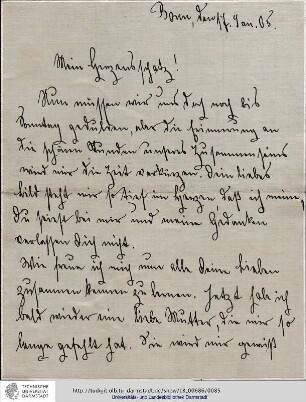 Bonn, den 17. Jan. 05.
Mein Herzensschatz!
Nun müssen wir uns doch noch bis
Sonntag gedulden, aber die Erinnerung an
die schönen Stunden unseres Zusammenseins
wird mir die Zeit verkürzen. Dein liebes
Bild steht mir so tief im Herzen daß ich meine,
Du seiest bei mir und meine Gedanken
verlassen Dich nicht.
Wie freue ich mich nun alle Deine Lieben
zusammen kennen zu lernen. Jetzt habe ich
bald wieder eine liebe Mutter, die mir so
lange gefehlt hat. Sie wird mir gewiß
TECHNISCHE
UNIVERSITÄT
DARMSTADT
Universitäts- und Landesbibliothek Darmstadt